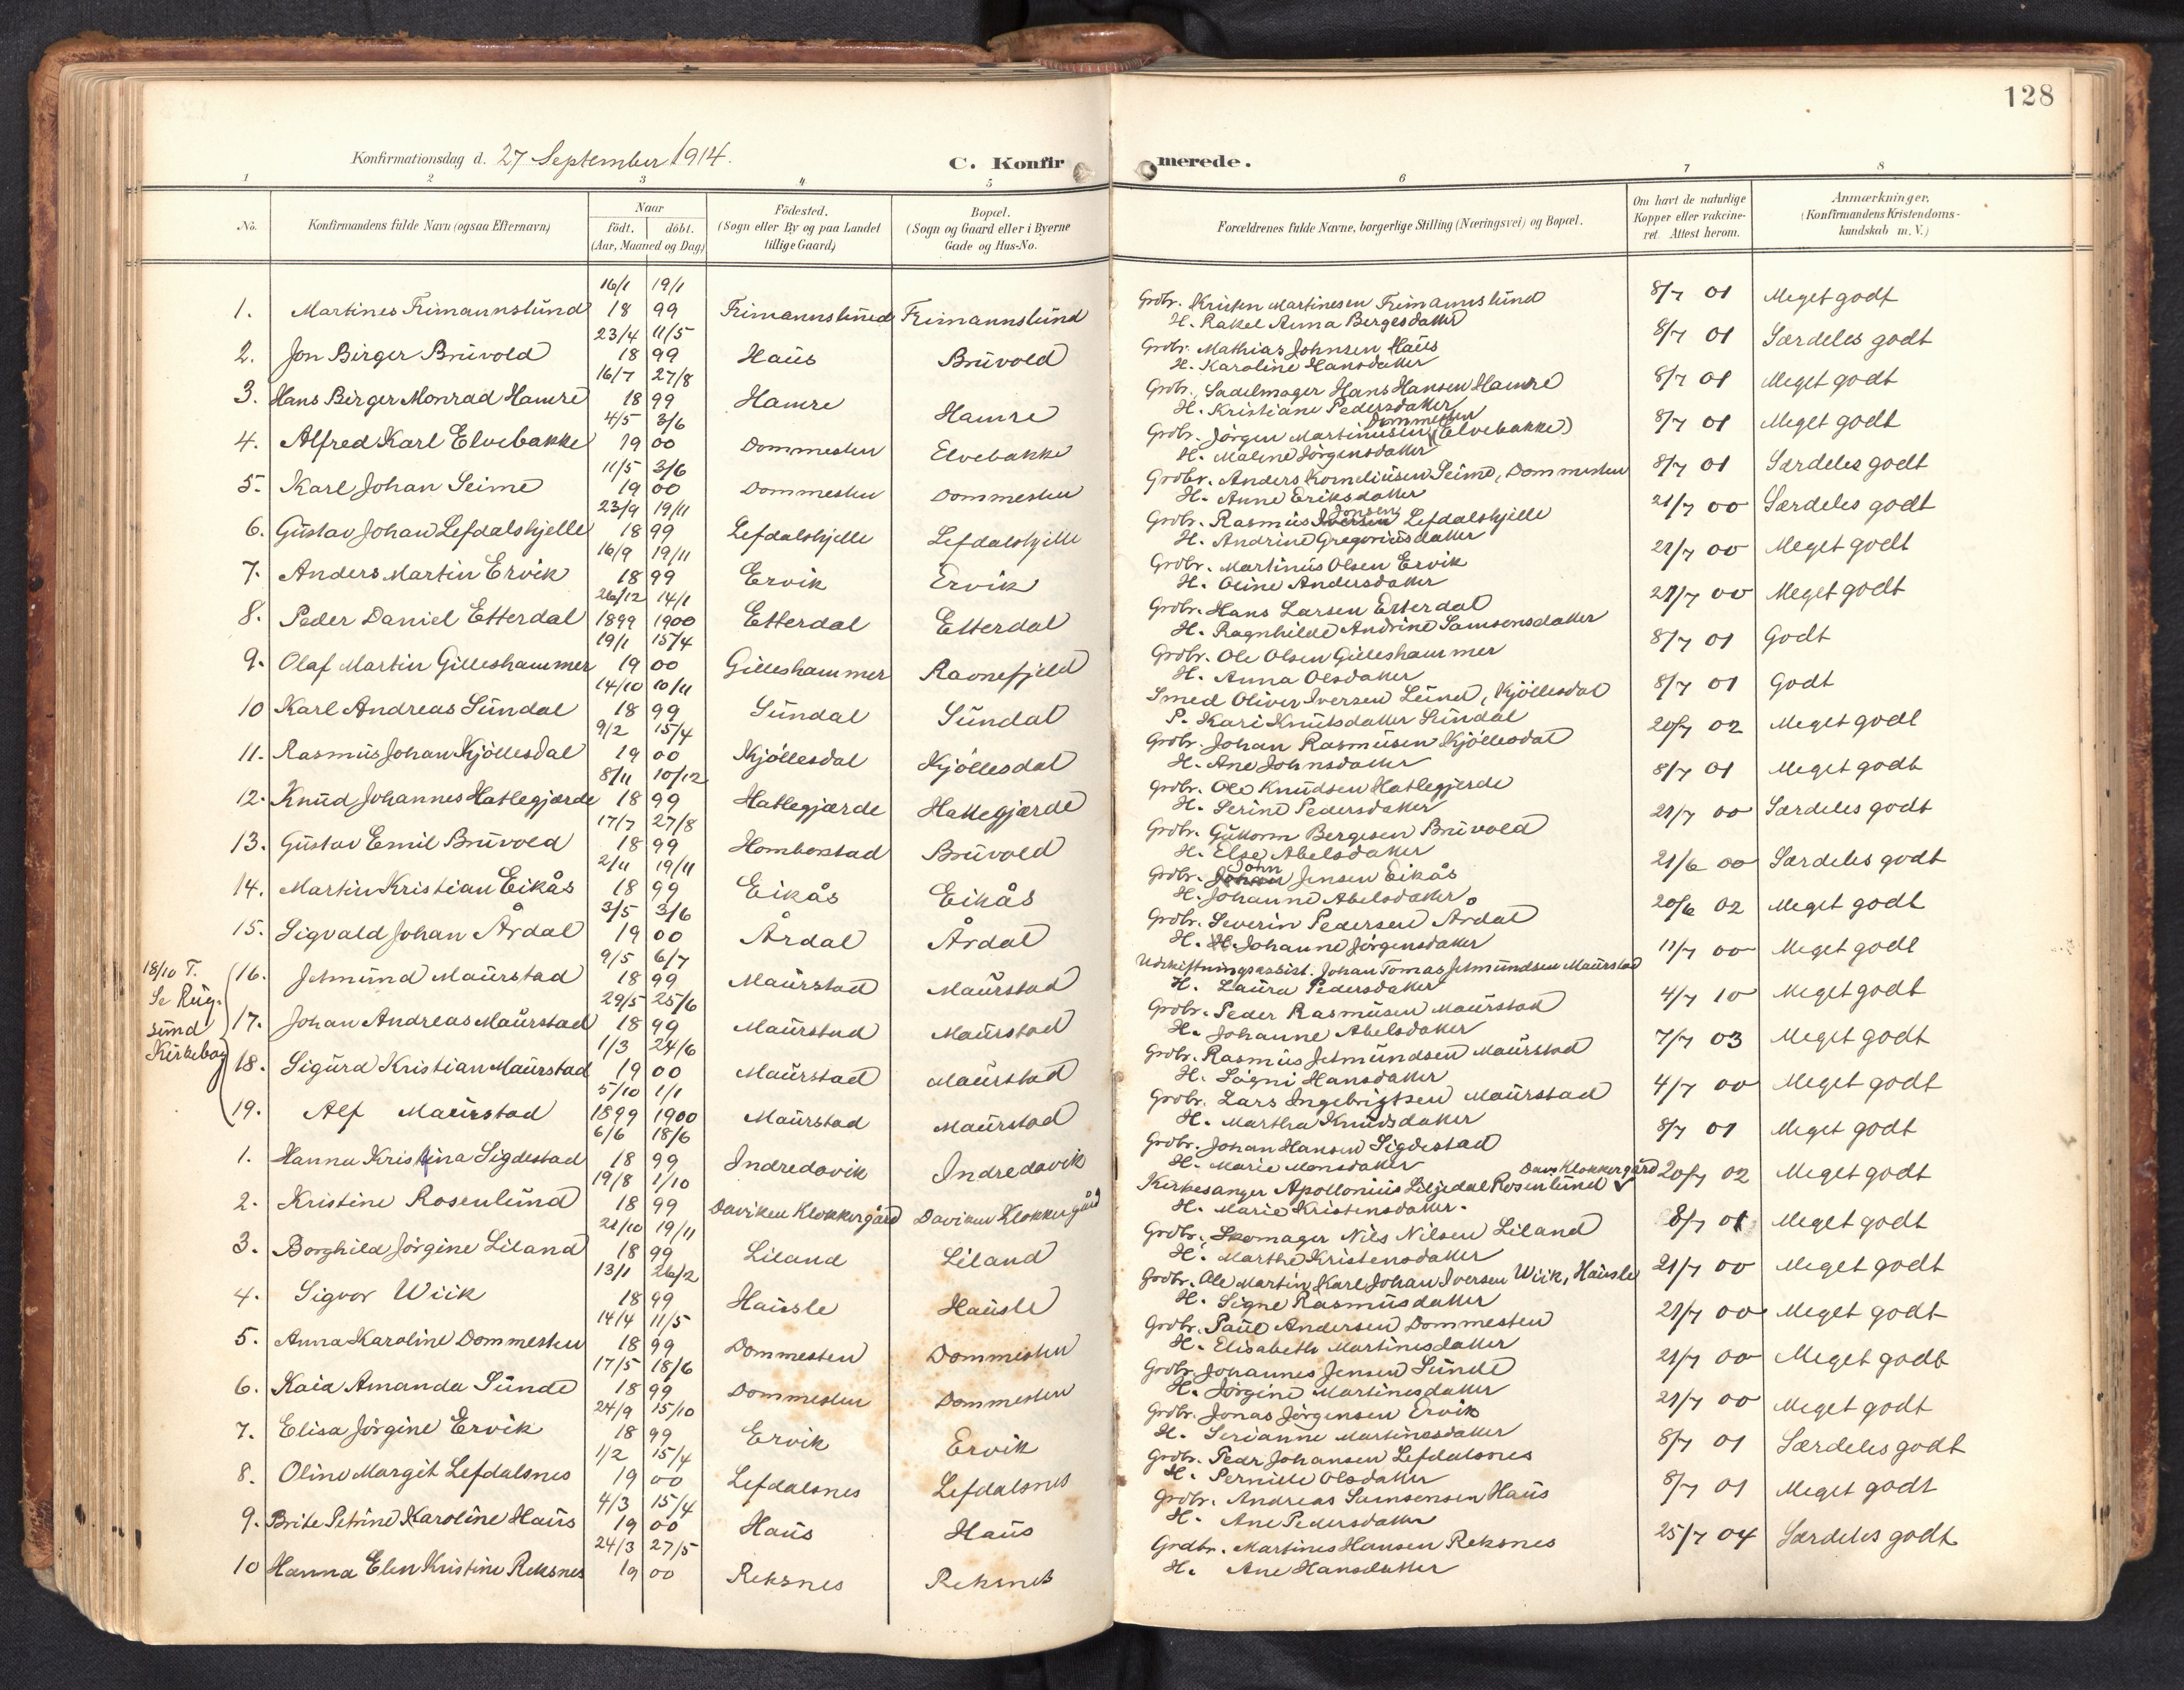 128
Konfirmationsdag d. 27 September 1914.
C. Konfirmerede.
1 2 3 4 5 6 7 8
No. Konfirmandens fulde Navn (ogsaa Efternavn) Naar födt. döbt. (Aar, Maaned og Dag) Födested. (Sogn eller By og paa Landet tillige Gaard) Bopæl. (Sogn og Gaard eller i Byerne Gade og Hus-No. Forældrenes fulde Navne, borgerlige Stilling (Næringsvei) og Bopæl. Om havt de naturlige Kopper eller vakcineret. Attest herom. Anmærkninger. (Konfirmandens Kristendomskundskab m. V.)
16/1 19/1
1. Martines Frimannslund 18 99 Frimannslund Frimannslund Grdbr. Kristen Martinesen Frimannslund 8/7 01 Meget godt
H. Rakel Anna Bergesdatter
23/4 11/5
2. Jon Birger Bruvold 18 99 Haus Bruvold Grdbr. Mathias Johnsen Haus 8/7 01 Særdeles godt
H. Karoline Hansdatter
16/7 27/8
3. Hans Birger Monrad Hamre 18 99 Hamre Hamre Grdbr. Sadelmager Hans Hansen Hamre 8/7 01 Meget godt
H. Kristiane Pedersdatter
4/5 3/6
4. Alfred Karl Elvebakke 19 00 Dommesten Elvebakke Grdbr. Jörgen Martinusen Dommesten (Elvebakke) 8/7 01 Meget godt
H. Malene Jörgensdatter
11/5 3/6
5. Karl Johan Seime 19 00 Dommesten Dommesten Grdbr. Anders Korneliusen Seime, Dommesten 8/7 01 Særdeles godt
H. Anne Eriksdatter
23/9 19/11
6. Gustav Johan Lefdalshjelle 18 99 Lefdalshjelle Lefdalshjelle Grdbr. Rasmus Jonsen Lefdalshjelle 21/7 00 Særdeles godt
H. Andrine Gregoriusdatter
16/9 19/11
7. Anders Martin Ervik 18 99 Ervik Ervik Grdbr. Martinus Olsen Ervik 21/7 00 Meget godt
H. Oline Andersdatter
26/12 14/1
8. Peder Daniel Etterdal 1899 1900 Etterdal Etterdal Grdbr. Hans Larsen Etterdal 21/7 00 Meget godt
H. Ragnhilde Andrine Samsonsdatter
19/1 15/4
9. Olaf Martin Gilleshammer 19 00 Gilleshammer Ravnefjeld Grdbr. Ole Olsen Gilleshammer 8/7 01 Godt
H. Anna Olsdatter
14/10 10/11
10 Karl Andreas Sundal 18 99 Sundal Sundal Smed Oliver Iversen Leine, Kjöllesdal 8/7 01 Godt
P. Kari Knutsdatter Sundal
9/2 15/4
11. Rasmus Johan Kjöllesdal 19 00 Kjöllesdal Kjöllesdal Grdbr. Johan Rasmusen Kjöllesdal 20/7 02 Meget godt
H. Ane Johnsdatter
8/11 10/12
12. Knud Johannes Hatlegjærde 18 99 Hatlegjærde Hatlegjærde Grdbr. Ole Knudsen Hatlegjerde 8/7 01 Meget godt
H. Serine Pedersdatter
17/7 27/8
13. Gustav Emil Bruvold 18 99 Hombostad Bruvold Grdbr. Guttorm Bergesen Bruvold 21/7 00 Særdeles godt
H. Else Abelsdatter
2/11 19/11
14. Martin Kristian Eikås 18 99 Eikås Eikås Grdbr. John Jensen Eikås 21/6 00 Særdeles godt
H. Johanne Abelsdatter
3/5 3/6
15. Sigvald Johan Årdal 19 00 Årdal Årdal Grdbr. Severin Pedersen Årdal 20/6 02 Meget godt
H. Johanne Jörgensdatter
9/5 6/7
18/10 T. Se Rugsund Kirkebog
16. Jetmund Maurstad 18 99 Maurstad Maurstad Udskiftningsassist. Johan Tomas Jetmundsen Maurstad 11/7 00 Meget godt
H. Laura Pedersdatter
29/5 25/6
17. Johan Andreas Maurstad 18 99 Maurstad Maurstad Grdbr. Peder Rasmusen Maurstad 4/7 10 Meget godt
H. Johanne Abelsdatter
1/3 24/6
18. Sigurd Kristian Maurstad 19 00 Maurstad Maurstad Grdbr. Rasmus Jetmundsen Maurstad 7/7 03 Meget godt
H. Sögni Hansdatter
5/10 1/1
19. Alf Maurstad 1899 1900 Maurstad Maurstad Grdbr. Lars Ingebrigtsen Maurstad 4/7 00 Meget godt
H. Martha Knudsdatter
6/6 18/6
1. Hanna Kristina Sigdestad 18 99 Indredavik Indredavik Grdbr. Johan Hansen Sigdestad 8/7 01 Meget godt
H. Marie Monsdatter
19/8 1/10
2. Kristine Rosenlund 18 99 Daviken Klokkergård Daviken Klokkergård Kirkesanger Apollonius Liljedal Rosenlund Dav. Klokkergård 20/7 02 Meget godt
H. Marie Kristensdatter.
21/10 19/11
3. Borghild Jörgine Liland 18 99 Liland Liland Grdbr. Skomager Nils Nilsen Liland 8/7 01 Meget godt
H. Marthe Kristensdatter
13/1 26/2
4. Sigvor Wiik 18 99 Hausle Hausle Grdbr. Ole Martin Karl Johan Iversen Wiik, Hausle 21/7 00 Meget godt
H. Signe Rasmusdatter
14/4 11/5
5. Anna Karoline Dommesten 18 99 Dommesten Dommesten Grdbr. Paul Andersen Dommesten 21/7 00 Meget godt
H. Elisabeth Martinesdatter
17/5 18/6
6. Kaia Amanda Sunde 18 99 Dommesten Dommesten Grdbr. Johannes Jensen Sunde 21/7 00 Meget godt
H. Jörgine Martinesdatter
24/9 15/10
7. Elisa Jörgine Ervik 18 99 Ervik Ervik Grdbr. Jonas Jörgensen Ervik 21/7 00 Meget godt
H. Serianne Martinesdatter
1/2 15/4
8. Oline Margit Lefdalsnes 19 00 Lefdalsnes Lefdalsnes Grdbr. Pedr Johansen Lefdalsnes 8/7 01 Særdeles godt
H. Pernille Olsdatter
4/3 15/4
9. Brite Petrine Karoline Haus 19 00 Haus Haus Grdbr. Andreas Samsonsen Haus 8/7 01 Meget godt
H. Ane Pedersdatter
24/3 27/5
10 Hanna Elen Kristine Reksnes 19 00 Reksnes Reksnes Grdbr. Martines Hansen Reksnes 25/7 04 Særdeles godt
H. Ane Hansdatter